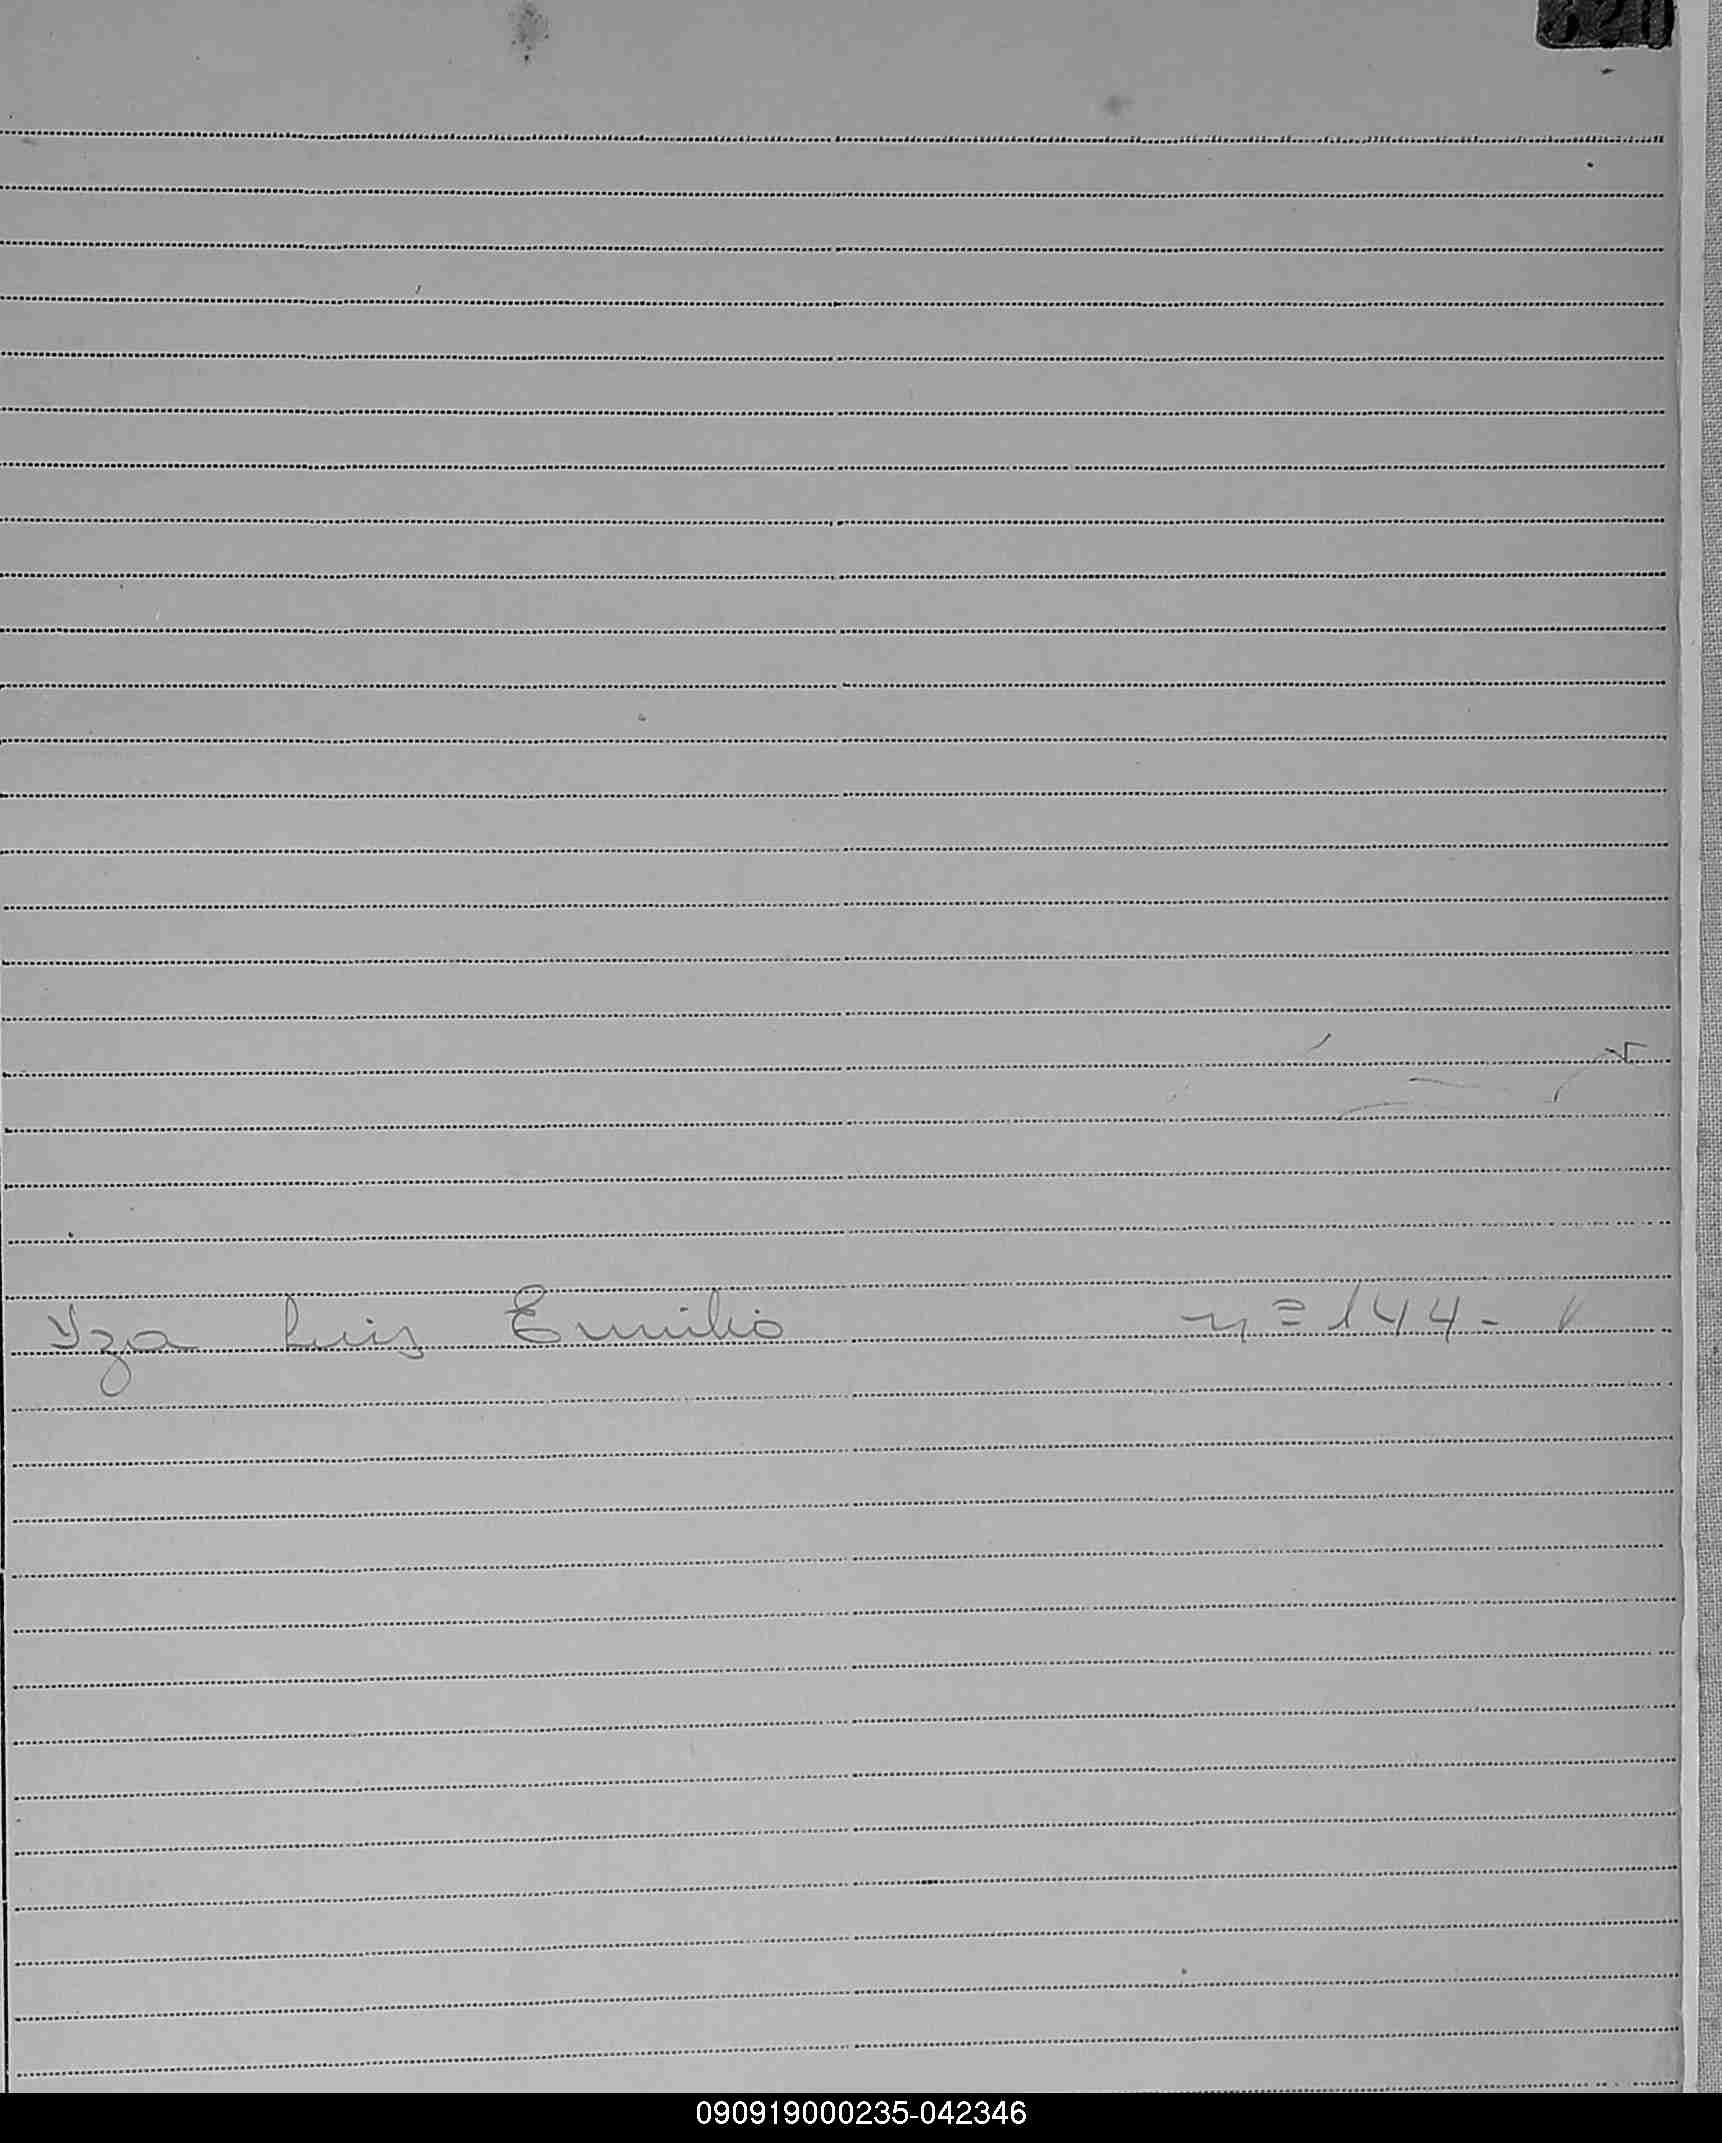 Yza Luis Emilio n = 144 -
090919000235-042346